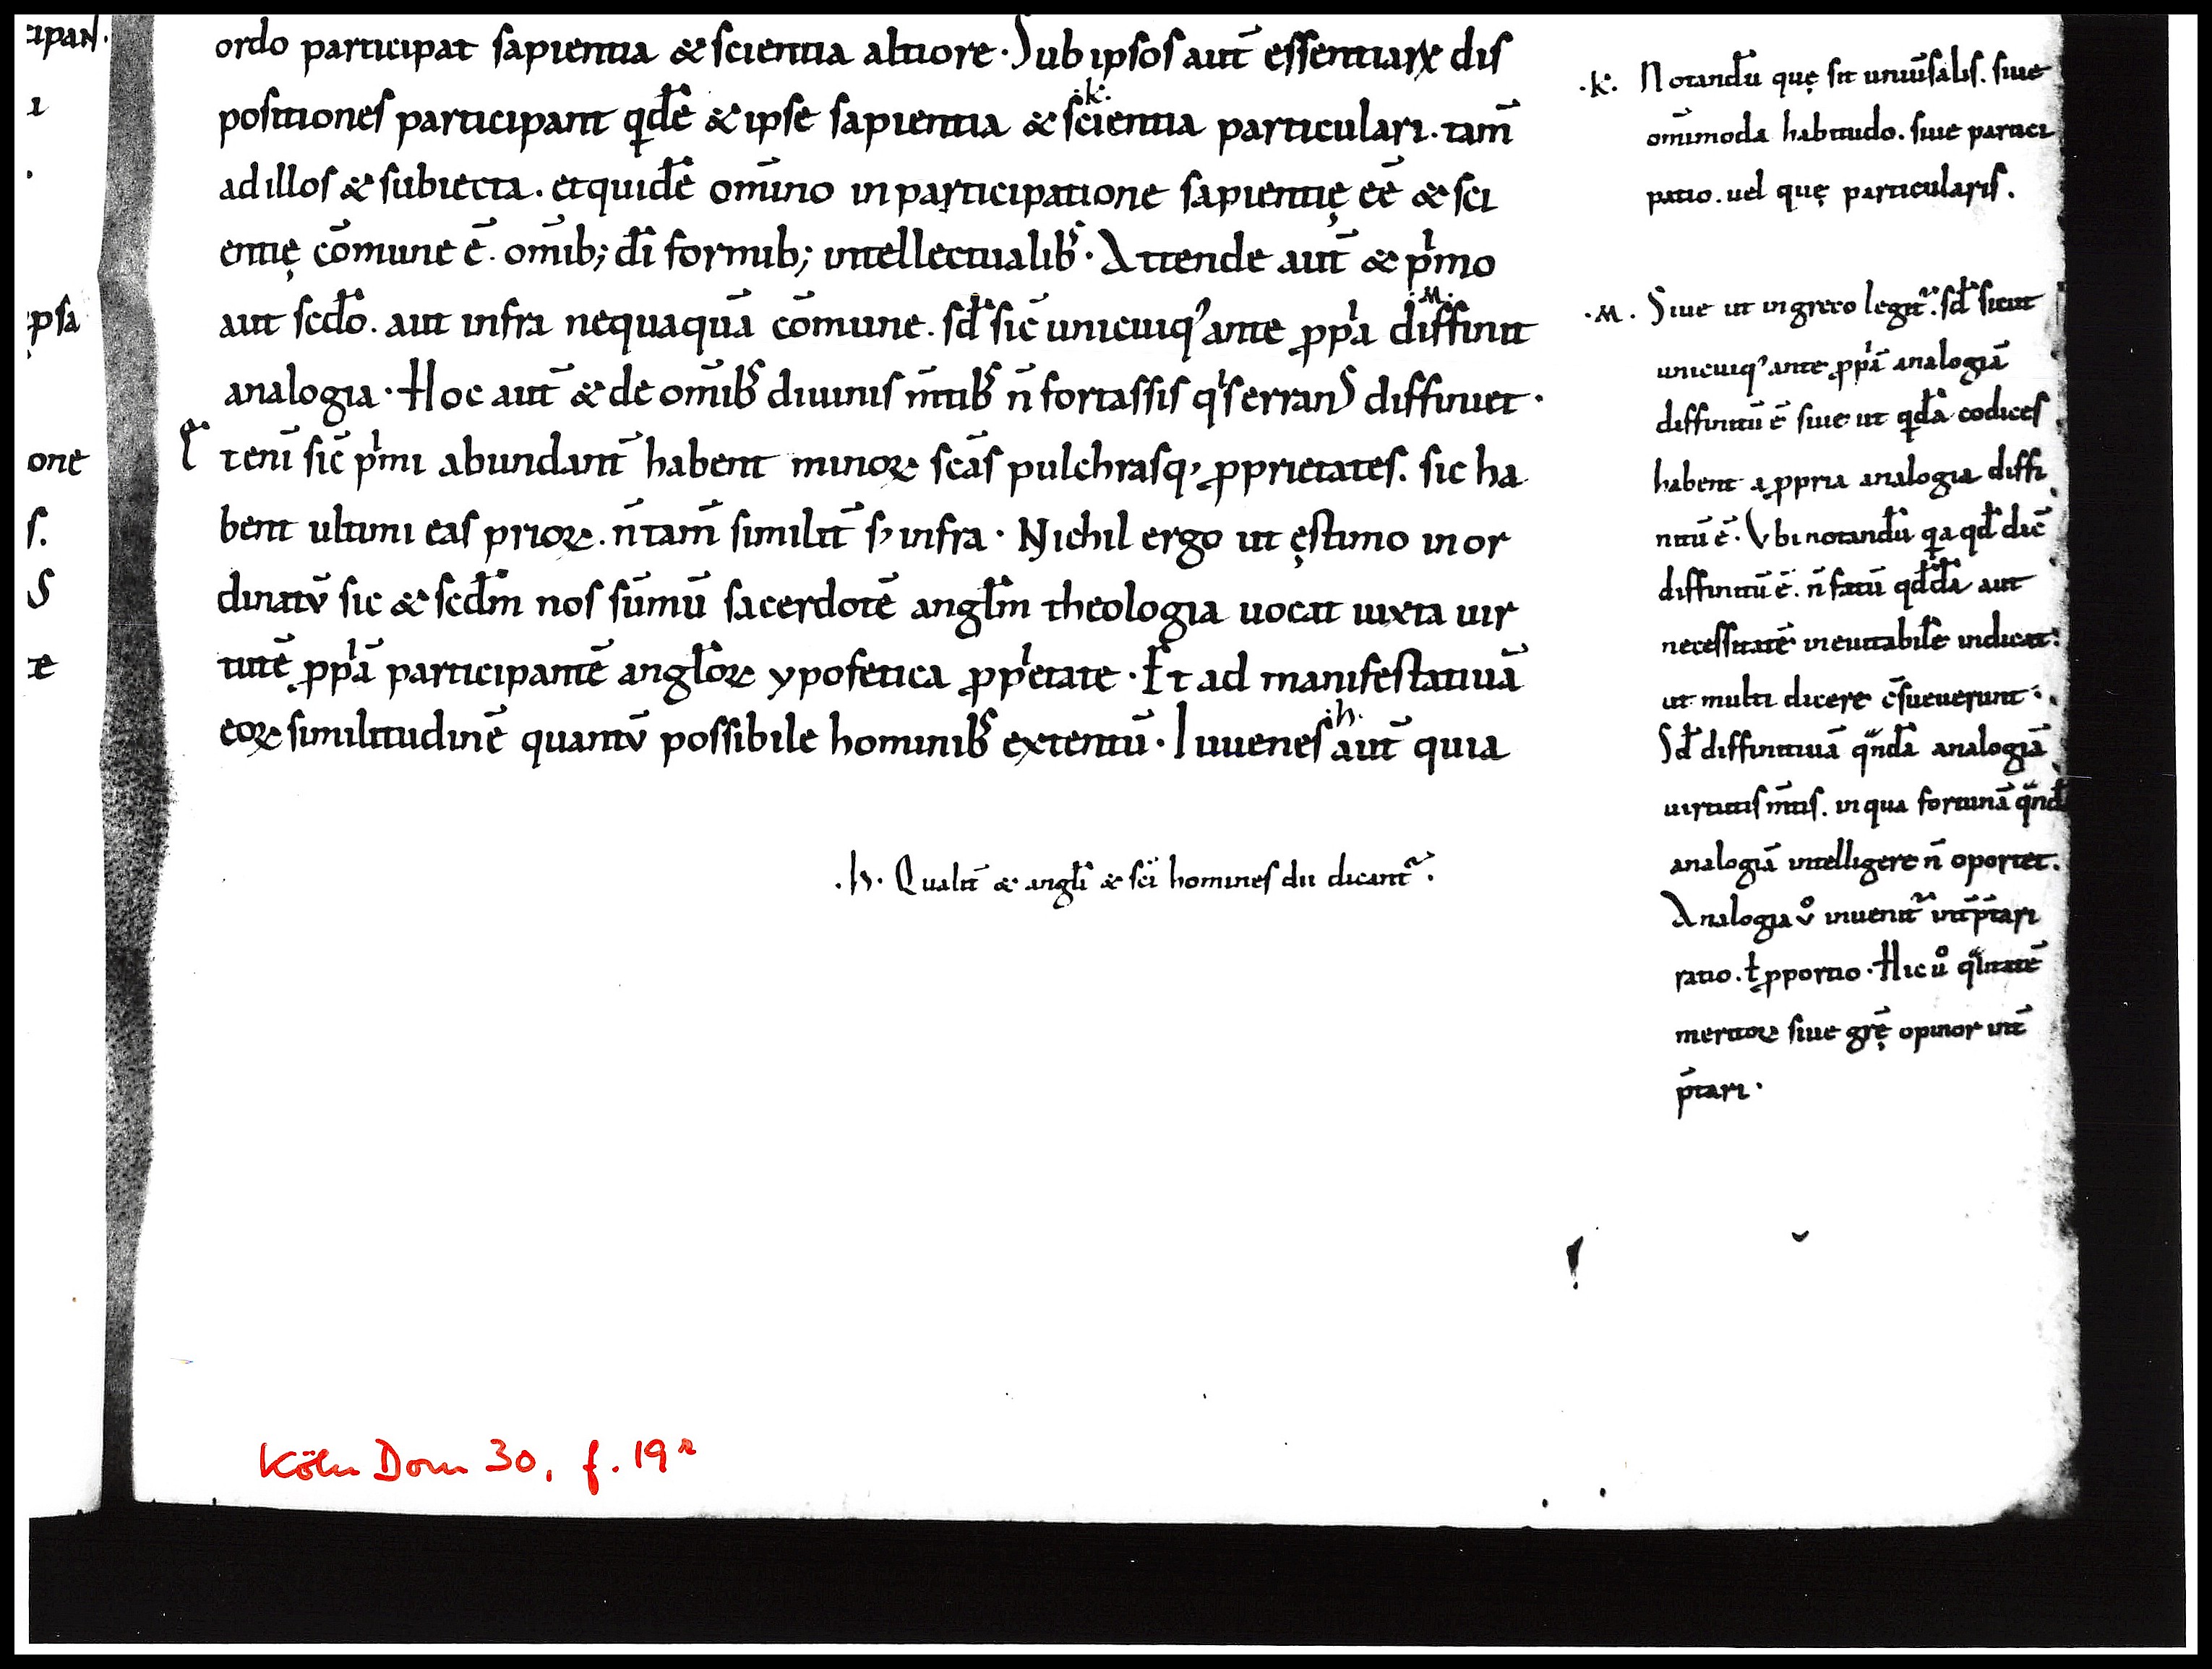 ipan.
ı
psa
one
s.
S
æ
ordo participat sapientia & scientia altiore. Sub ipsos aut̄ essentiarꝝ dis
positiones participant qdē & ipse sapientia & scientia particulari. tam̄
.k.
ad illos & subiecta. et quidē om̄ino in participatione sapientię eē & sci
entię cōmune ē. om̄ib; dī formib; intellectualib᷒. Attende aut̄ & pͥmo
aut scdo. aut infra nequaquā cōmune. sđ sic̄ unicuiq᷒ ante ꝓpͥa diffinit
.M.
analogia. Hoc aut̄ & de om̄ib᷒ diuinis m̄tib᷒ n̄ fortassis qͥs errans diffiniet.
Etenī sic̄ pͥmi abundant̄ habent minoꝝ scās pulchrasq᷒ ꝓprietates. sic ha
bent ultimi eas prioꝝ. n̄ tam̄ similit̄ s; infra. Nichil ergo ut ęstimo inor
dinatū sic & scdm nos sūmū sacerdotē anglm theologia uocat iuxta uir
tutē ꝓpͥā participantē angloꝝ ypofetica ꝓpͥetate. Et ad manifestatiuā
eoꝝ similitudinē quantū possibile hominib᷒ extentū. Iuuenes aut̄ quia
.h.
.h. Qualit̄ & angli & scī homines dii dicant᷑.
.k. Notandū quę sit uniūsalis. siue
om̄imoda habitudo. siue partici
patio. uel quę particularis.
.M. Siue ut in greco legit᷑. sđ sicut
unicuiq᷒ ante ꝓpͥā analogiā
diffinitū ē siue ut qdā codices
habent a ꝓpria analogia diffi
nitū ē. Vbi notandū qa qđ dic̄
diffinitū ē. n̄ fatū qdda aut
necessitatē ineuitabilē indicat.
ut multi dicere c̄sueuerunt.
Sđ diffinitiuā qndā analogiā
uirtutis m̄tis. in qua fortunā qnd
analogiā intelligere n̄ oportet.
Analogia ů inuenit᷑ int̄p̄tari
ratio. ł ꝓportio. Hic ů qlitatē
meritoꝝ siue grę̄ opinor int̄
p̄tari.
Köln Dom 30, f. 19ʳ